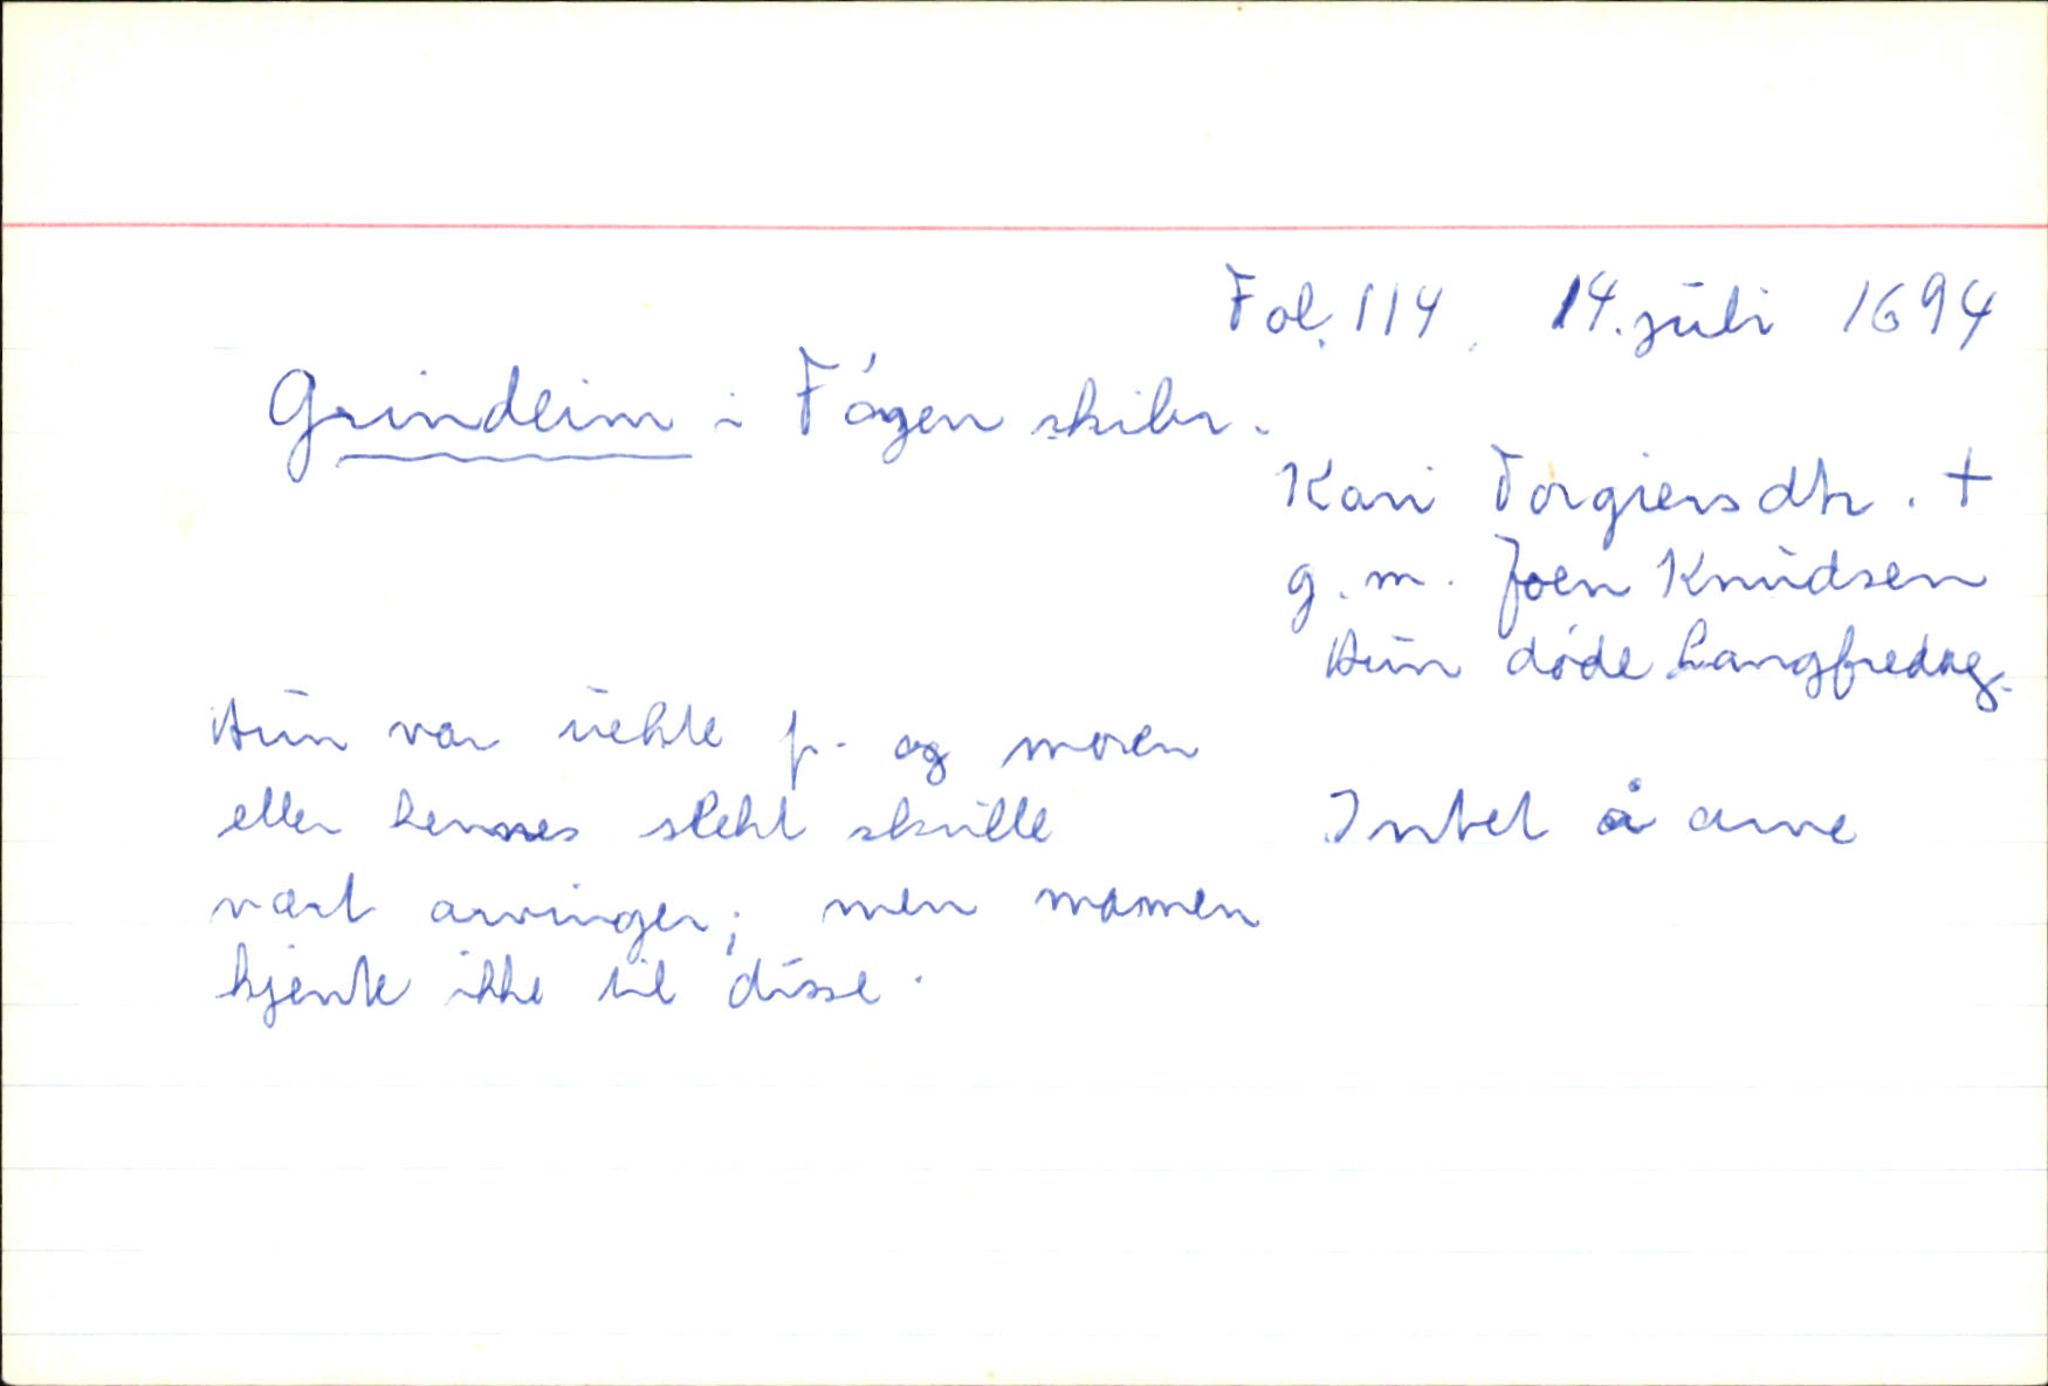 Fol. 114, 14. juli 1694
Grindeim i Fågen skibr.
Kari Torgiersdtr. +
g.m. Joen Knudsen
Hun døde Langfredag.
Hun var uekte f. og moren
eller hennes slekt skulle
vært arvinger; men mannen
kjente ikke til disse.
Intet å arve